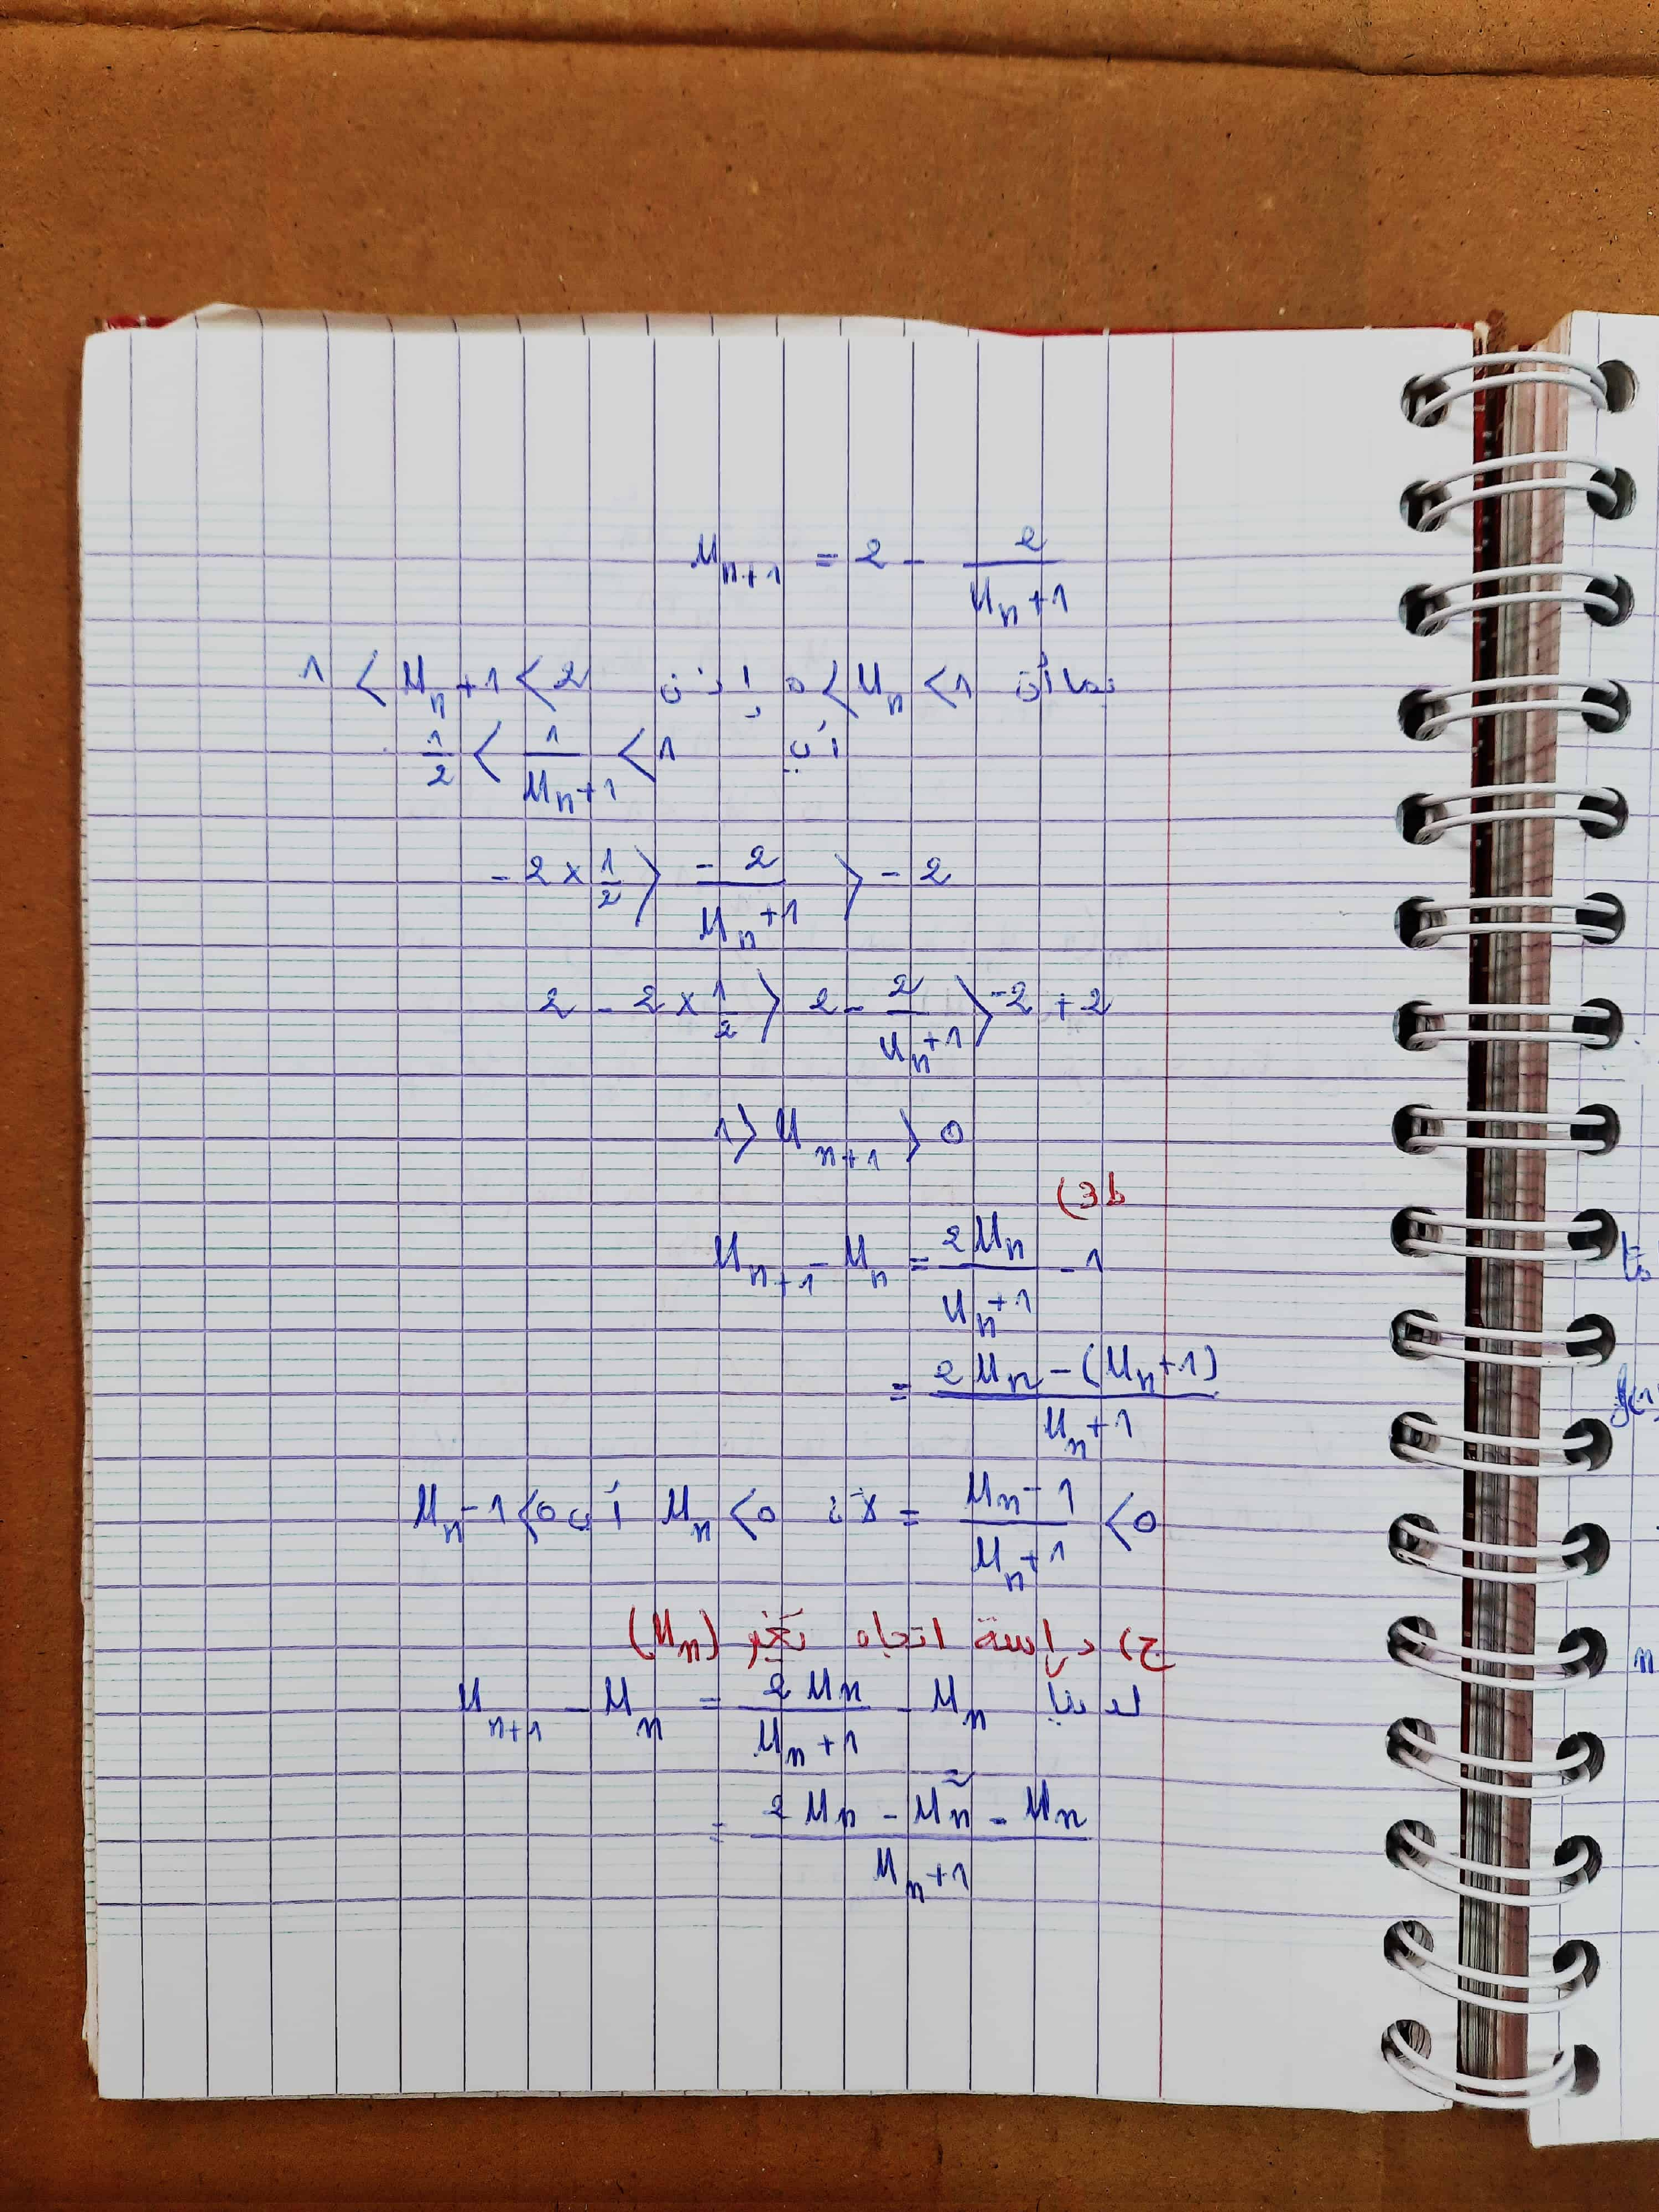 U_{n+1} = 2 - \frac{2}{U_n+1}
بما أن 0 < U_n < 1 إذن 1 < U_n+1 < 2
أي \frac{1}{2} < \frac{1}{U_n+1} < 1
-2 × \frac{1}{2} > \frac{-2}{U_n+1} > -2
2 - 2 × \frac{1}{2} > 2 - \frac{2}{U_n+1} > -2 + 2
1 > U_{n+1} > 0
(3b
U_{n+1} - U_n = \frac{2U_n}{U_n+1} - 1
= \frac{2U_n - (U_n+1)}{U_n+1}
= \frac{U_n - 1}{U_n+1} < 0 لأن U_n < 0 أي U_n - 1 < 0
ج) دراسة اتجاه تغير (U_n)
لدينا U_{n+1} - U_n = \frac{2U_n}{U_n+1} - U_n
= \frac{2U_n - U_n^2 - U_n}{U_n+1}